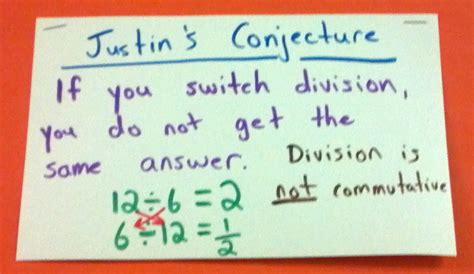 Justin's Conjecture
If you switch division,
you do not get the
same answer. Division is
not commutative
12÷6=2
6÷12=1/2